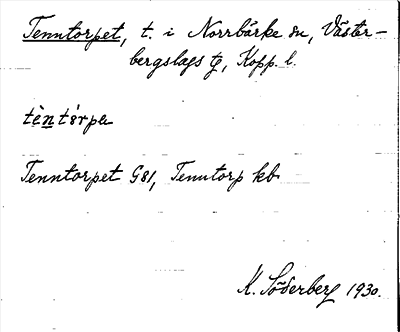 Tenntorpet, t. i Norrbärke sn, Väster-
bergslags tg, Kopp. l.
tèntórpe
Tenntorpet G81, Tenntorp kb
K. Söderberg 1930.